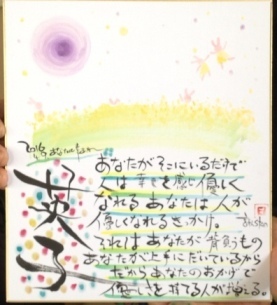 英子
あなたがそこにいるだけで
人は幸せを感じ優しく
なれる あなたは 人が
優しくなれるきっかけ。
それは あなたが 背負うもの
あなたが上手にだいているから
だから あなたのおかげで
優しさを持てる人が増える。